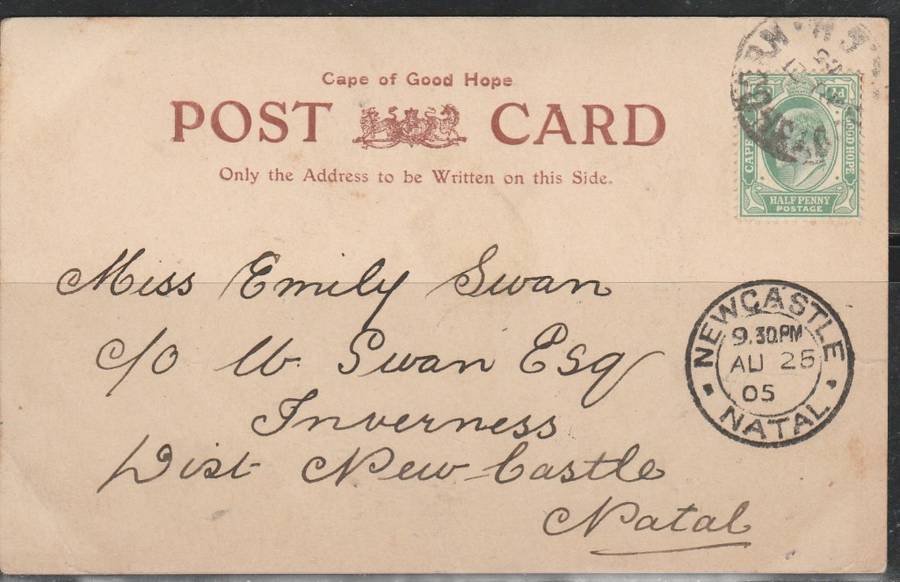 Cape of Good Hope
POST CARD
Only the Address to be Written on this Side.
GOOD HOPE
HALFPENNY
POSTAGE
Miss Emily Swan
c/o W. Swan Esq
Inverness
Dist New Castle
Natal
NEWCASTLE
9.30.PM
AU 25
05
NATAL